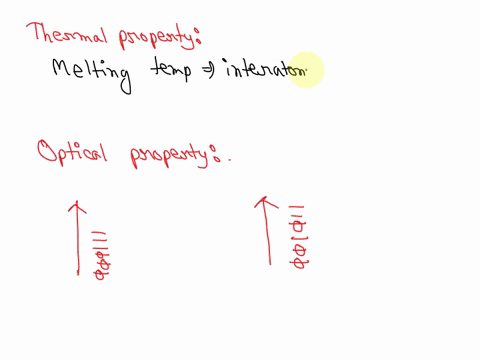 Thermal property:
Melting temp ⇒ interatom
Optical property:.